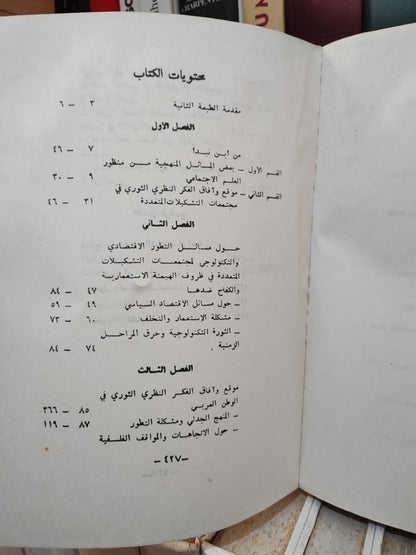 CHARPENTIER
محتويات الكتاب
مقدمة الطبعة الثانية ٣ – ٦
الفصل الاول
من أين نبدأ ٧ – ٤٦
القسم الاول – بعض المسائل المنهجية من منظور
العلم الاجتماعي ٩ – ٣٠
القسم الثاني – موقع وآفاق الفكر النظري الثوري في
مجتمعات التشكيلات المتعددة ٣١ – ٤٦
الفصل الثاني
حول مسائل التطور الاقتصادي
والتكنولوجي لمجتمعات التشكيلات
المتعددة في ظروف الهيمنة الاستعمارية
والكفاح ضدها ٤٧ – ٨٤
– حول مسائل الاقتصاد السياسي ٤٩ – ٥٩
– مشكلة الاستعمار والتخلف ٦٠ – ٧٣
– الثورة التكنولوجية وحرق المراحل
الزمنية ٧٤ – ٨٤
الفصل الثالث
موقع وآفاق الفكر النظري الثوري في
الوطن العربي ٨٥ – ٣٦٦
– المنهج الجدلي ومشكلة التطور ٨٧ – ١١٩
– حول الاتجاهات والمواقف الفلسفية
–٤٢٧–